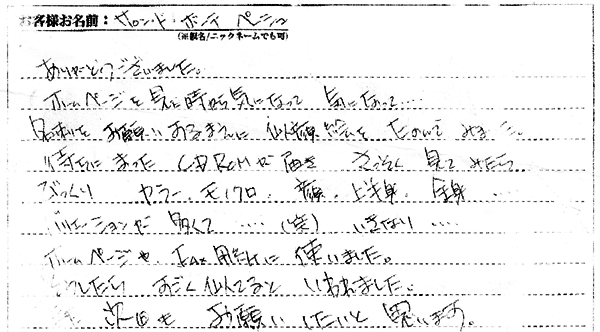 お客様お名前：サロン・ド・ボーテ ペーシュ
(※仮名/ニックネームでも可)
ありがとうございました。
ホームページを見た時から気になって 気になって‥‥
名刺をお願いするまえに 似顔絵を たのんで みまし た。
待ちにまった CDROMが届き さっそく 見てみたら
びっくり カラー、モノクロ、顔、上半身、全身‥‥‥
バリエーションが 多くて ‥‥ (笑) いきなり ‥‥
ホームページや、FAX用紙に 使いました。
そうしたら すごく似てると いわれました。
次回も お願いしたいと 思います。